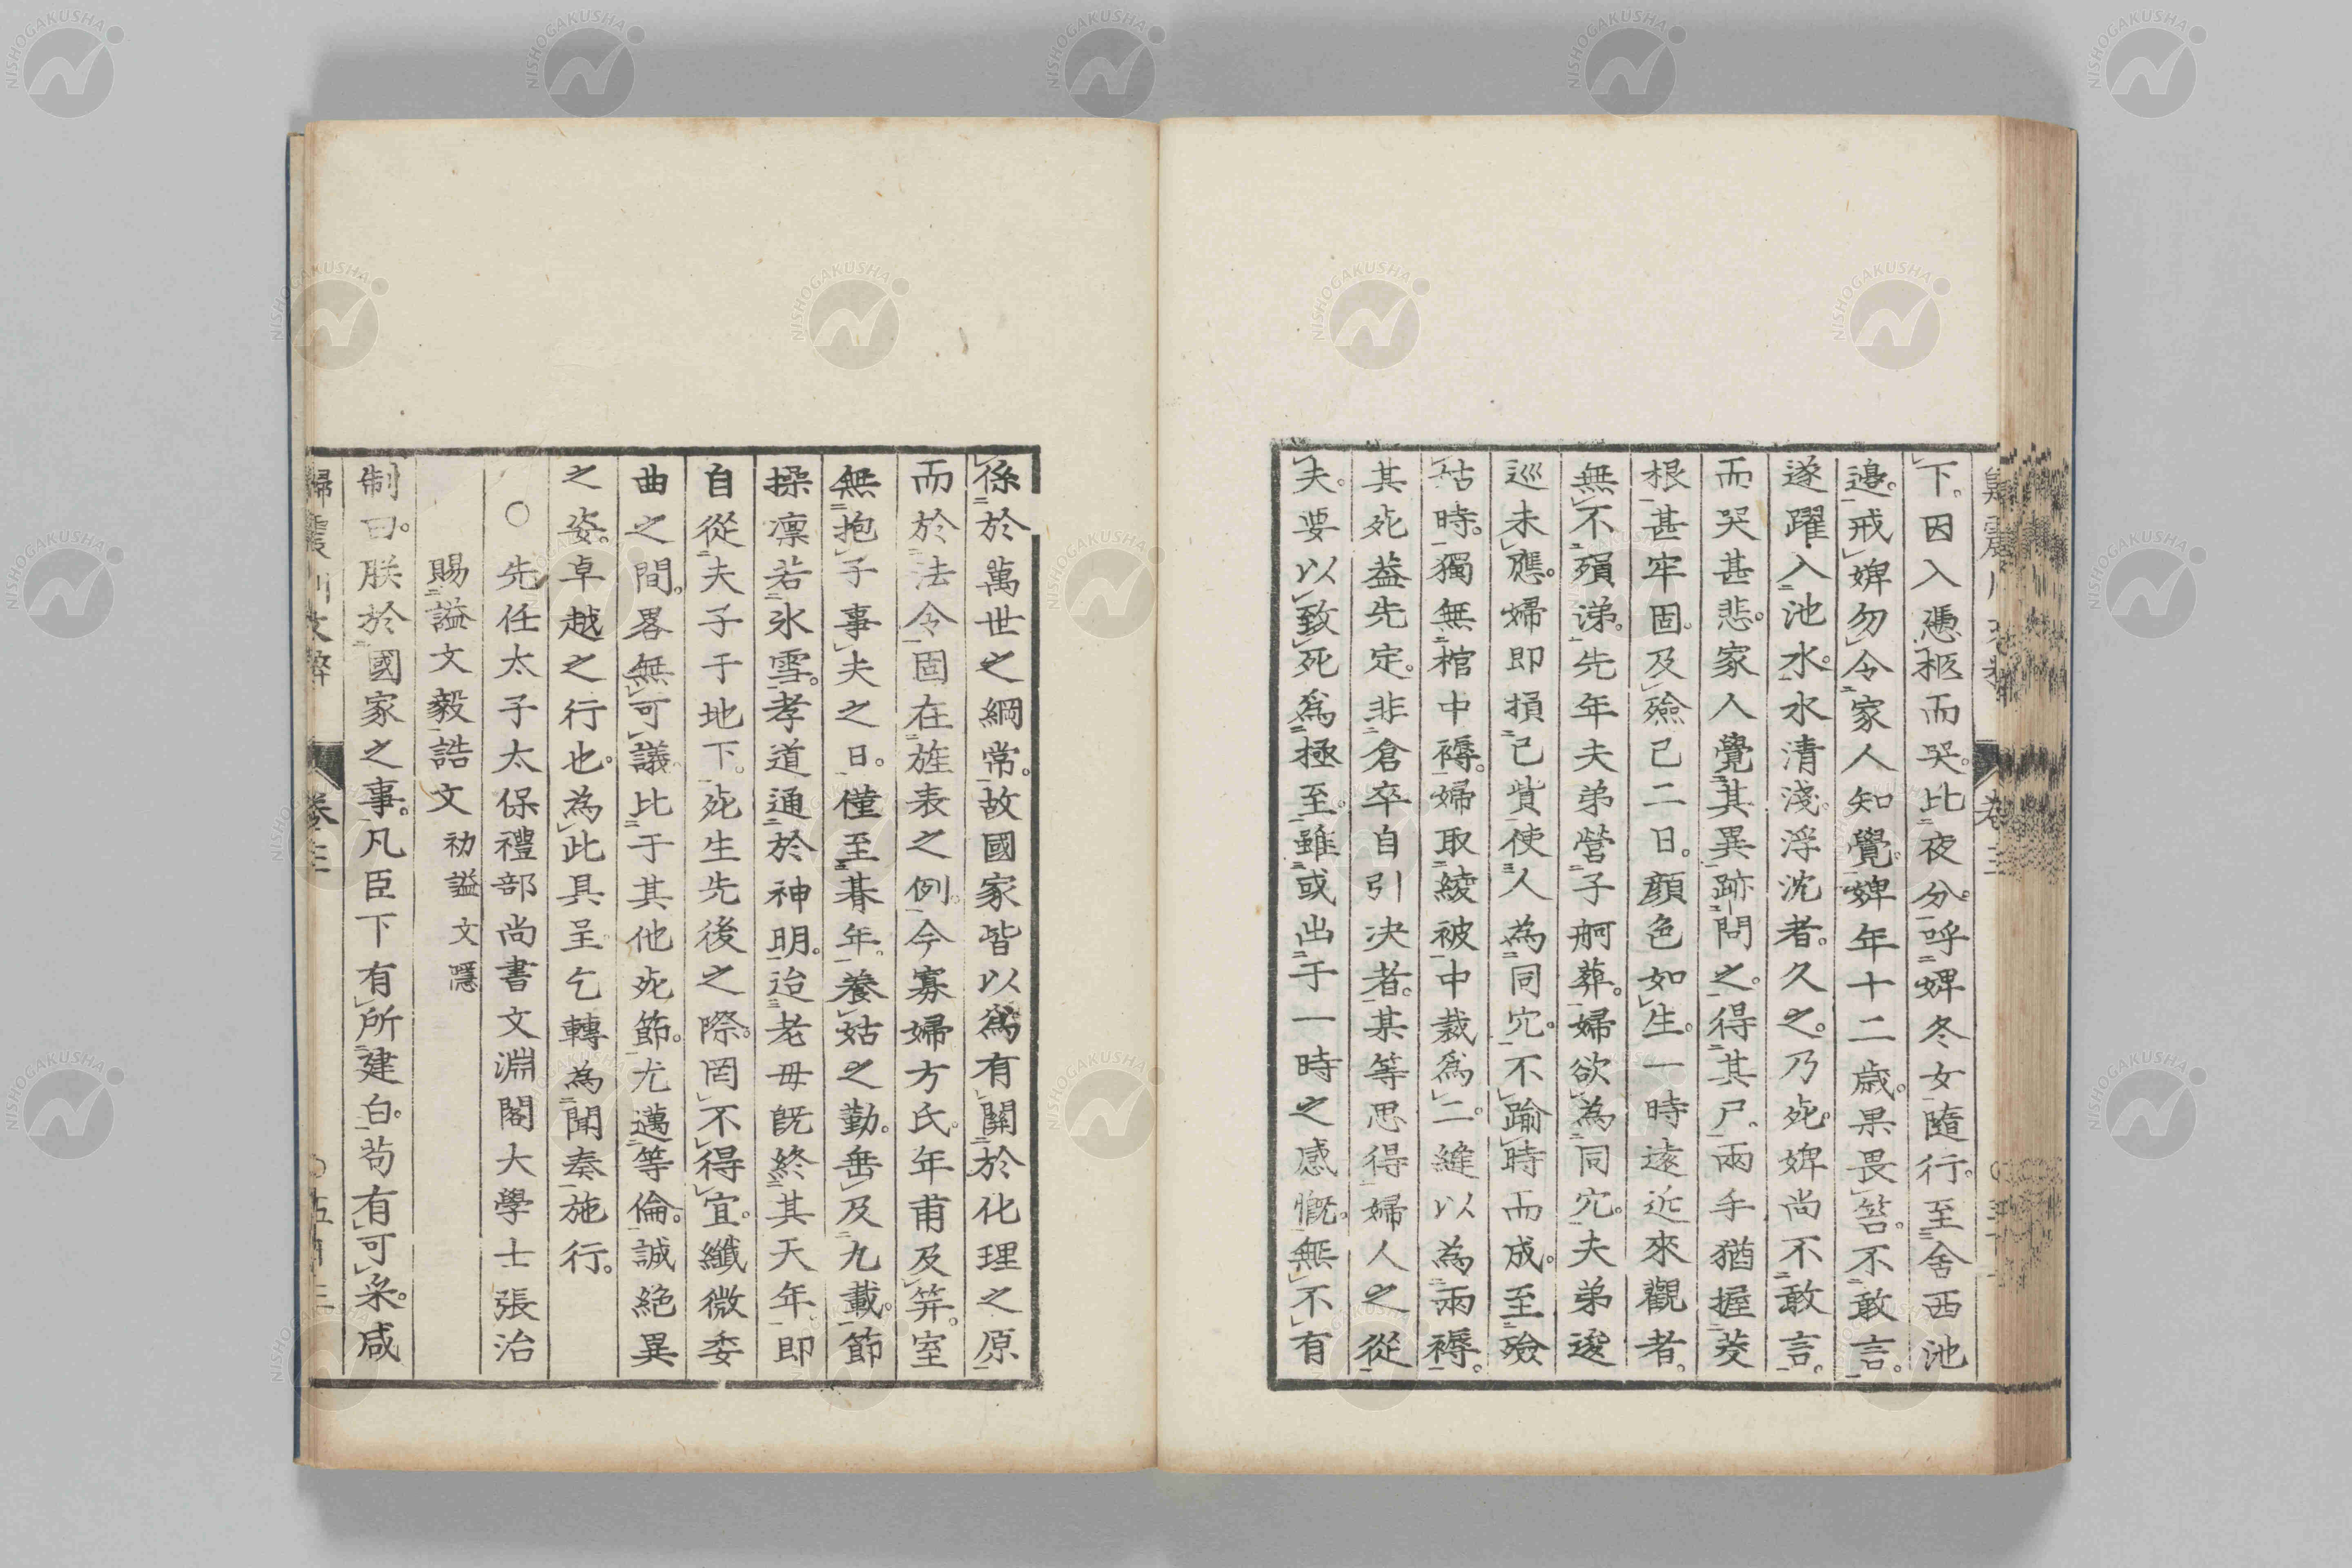 下。因入憑柩而哭。比夜分。呼婢冬女隨行。至舍西池
邊。戒婢勿令家人知覺。婢年十二歲。果畏笞。不敢言。
遂躍入池水。水清淺。浮沈者。久之。乃死。婢尚不敢言。
而哭甚悲。家人覺其異跡問之。得其尸。兩手猶握菱
根甚牢固。及殮已二日。顏色如生。一時遠近來觀者。
無不殞涕。先年夫弟營子舸葬。婦欲為同穴。夫弟逡
巡未應。婦即損己貲使人為同穴。不踰時而成。至殮
姑時。獨無棺中褥。婦取綾被中裁爲二。縫以為兩褥。
其死葢先定。非倉卒自引決者。某等思得婦人之從
夫。要以致死爲極至。雖或出于一時之感慨。無不有
係於萬世之綱常。故國家皆以爲有關於化理之原
而於法令固在旌表之例。今寡婦方氏。年甫及筓。室
無抱子事夫之日。僅至朞年。養姑之勤。垂及九載。節
操凛若氷雪。孝道通於神明。迨老母既終其天年。即
自從夫子于地下。死生先後之際。罔不得宜。纖微委
曲之間。畧無可議。比于其他死節。尤邁等倫。誠絕異
之姿。卓越之行也。為此具呈乞轉為聞奏施行。
○先任太子太保禮部尚書文淵閣大學士張治
賜謚文毅誥文 初謚文隱
制曰。朕於國家之事。凡臣下有所建白。苟有可采。咸
歸震川文粹 卷三